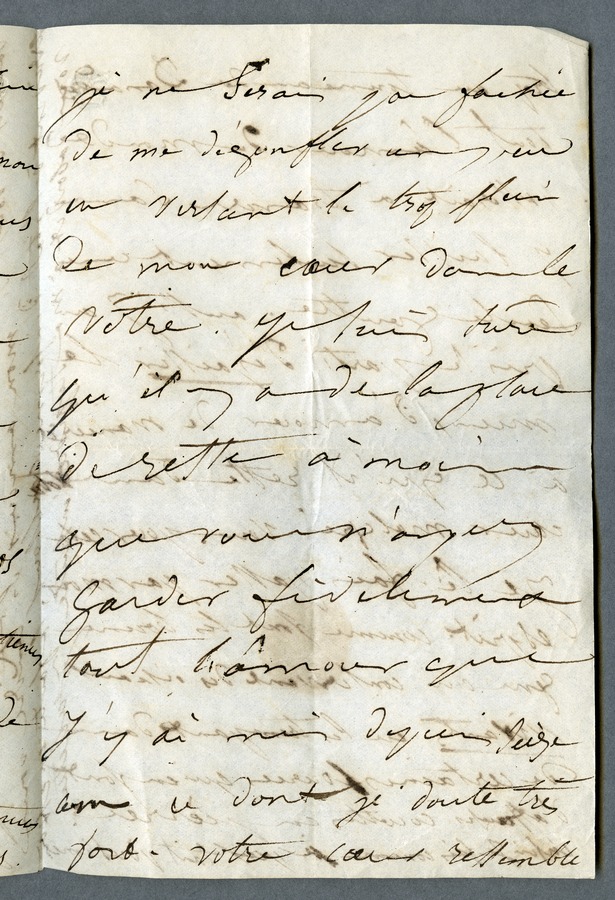 je ne serais pas fachée
de me dégonfler un peu
en versant le trop plein
de mon cœur dans le
vôtre. je suis sure
qu'il y a de la place
de reste à moins
que vous n'ayez
garder fidèlement
tout l'amour que
j'y ai mis depuis seize
ans ce dont je doute très
fort. votre cœur ressemble